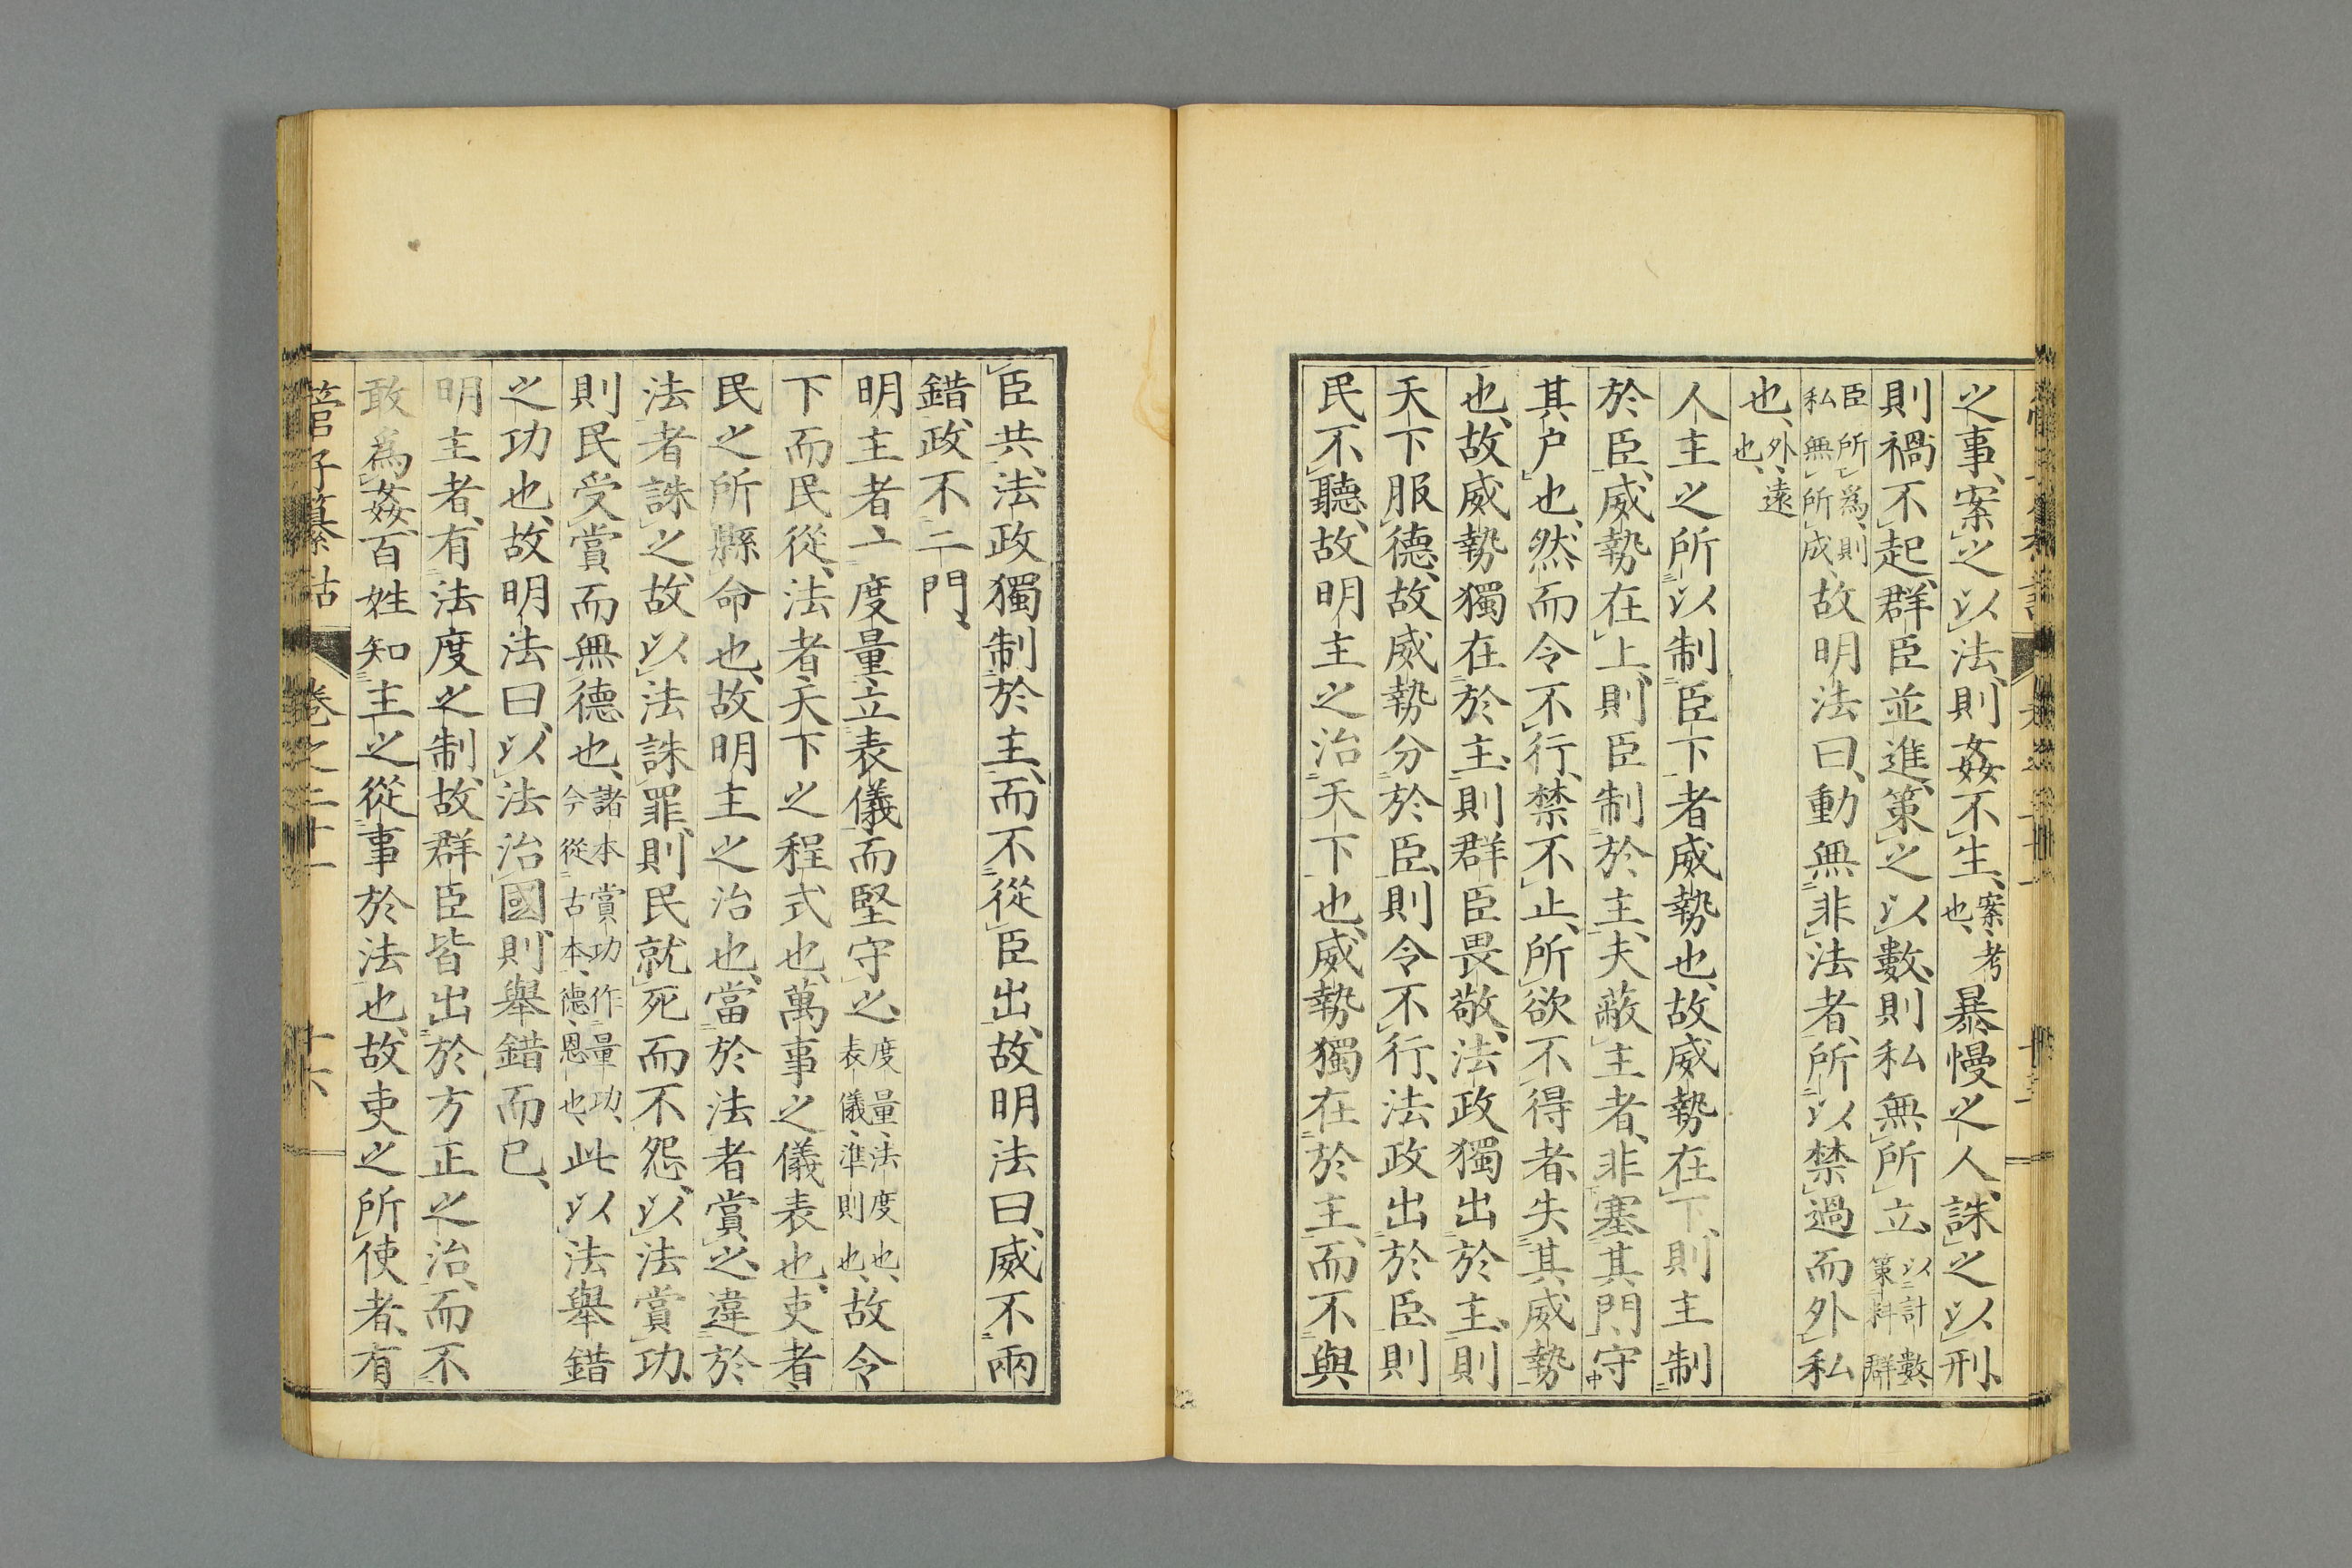 之事、案之以法、則姦不生、案、考也、暴慢之人、誅之以刑、
則禍不起、群臣並進、策之以數、則私無所立、以計數、策料群
臣所爲、則私無所成、故明法曰、動無非法者、所以禁過而外私
也、外、遠也、
人主之所以制臣下者威勢也、故威勢在下、則主制
於臣、威勢在上、則臣制於主、夫蔽主者、非塞其門、守
其戶也、然而令不行、禁不止、所欲不得者、失其威勢
也、故威勢獨在於主、則群臣畏敬、法政獨出於主、則
天下服德、故威勢分於臣、則令不行、法政出於臣、則
民不聽、故明主之治天下也、威勢獨在於主、而不與
臣共、法政獨制於主、而不從臣出、故明法曰、威不兩
錯、政不二門、
明主者、一度量立表儀、而堅守之、度量、法度也、表儀、準則也、故令
下而民從、法者、天下之程式也、萬事之儀表也、吏者、
民之所縣命也、故明主之治也、當於法者賞之、違於
法者誅之、故以法誅罪、則民就死而不怨、以法賞功、
則民受賞而無德也、諸本賞功作量功、今從古本、德、恩也、此以法舉錯
之功也、故明法曰、以法治國、則舉錯而已、
明主者、有法度之制、故群臣皆出於方正之治、而不
敢爲姦、百姓知主之從事於法也、故吏之所使者、有
管子纂詁 卷之二十一 十六